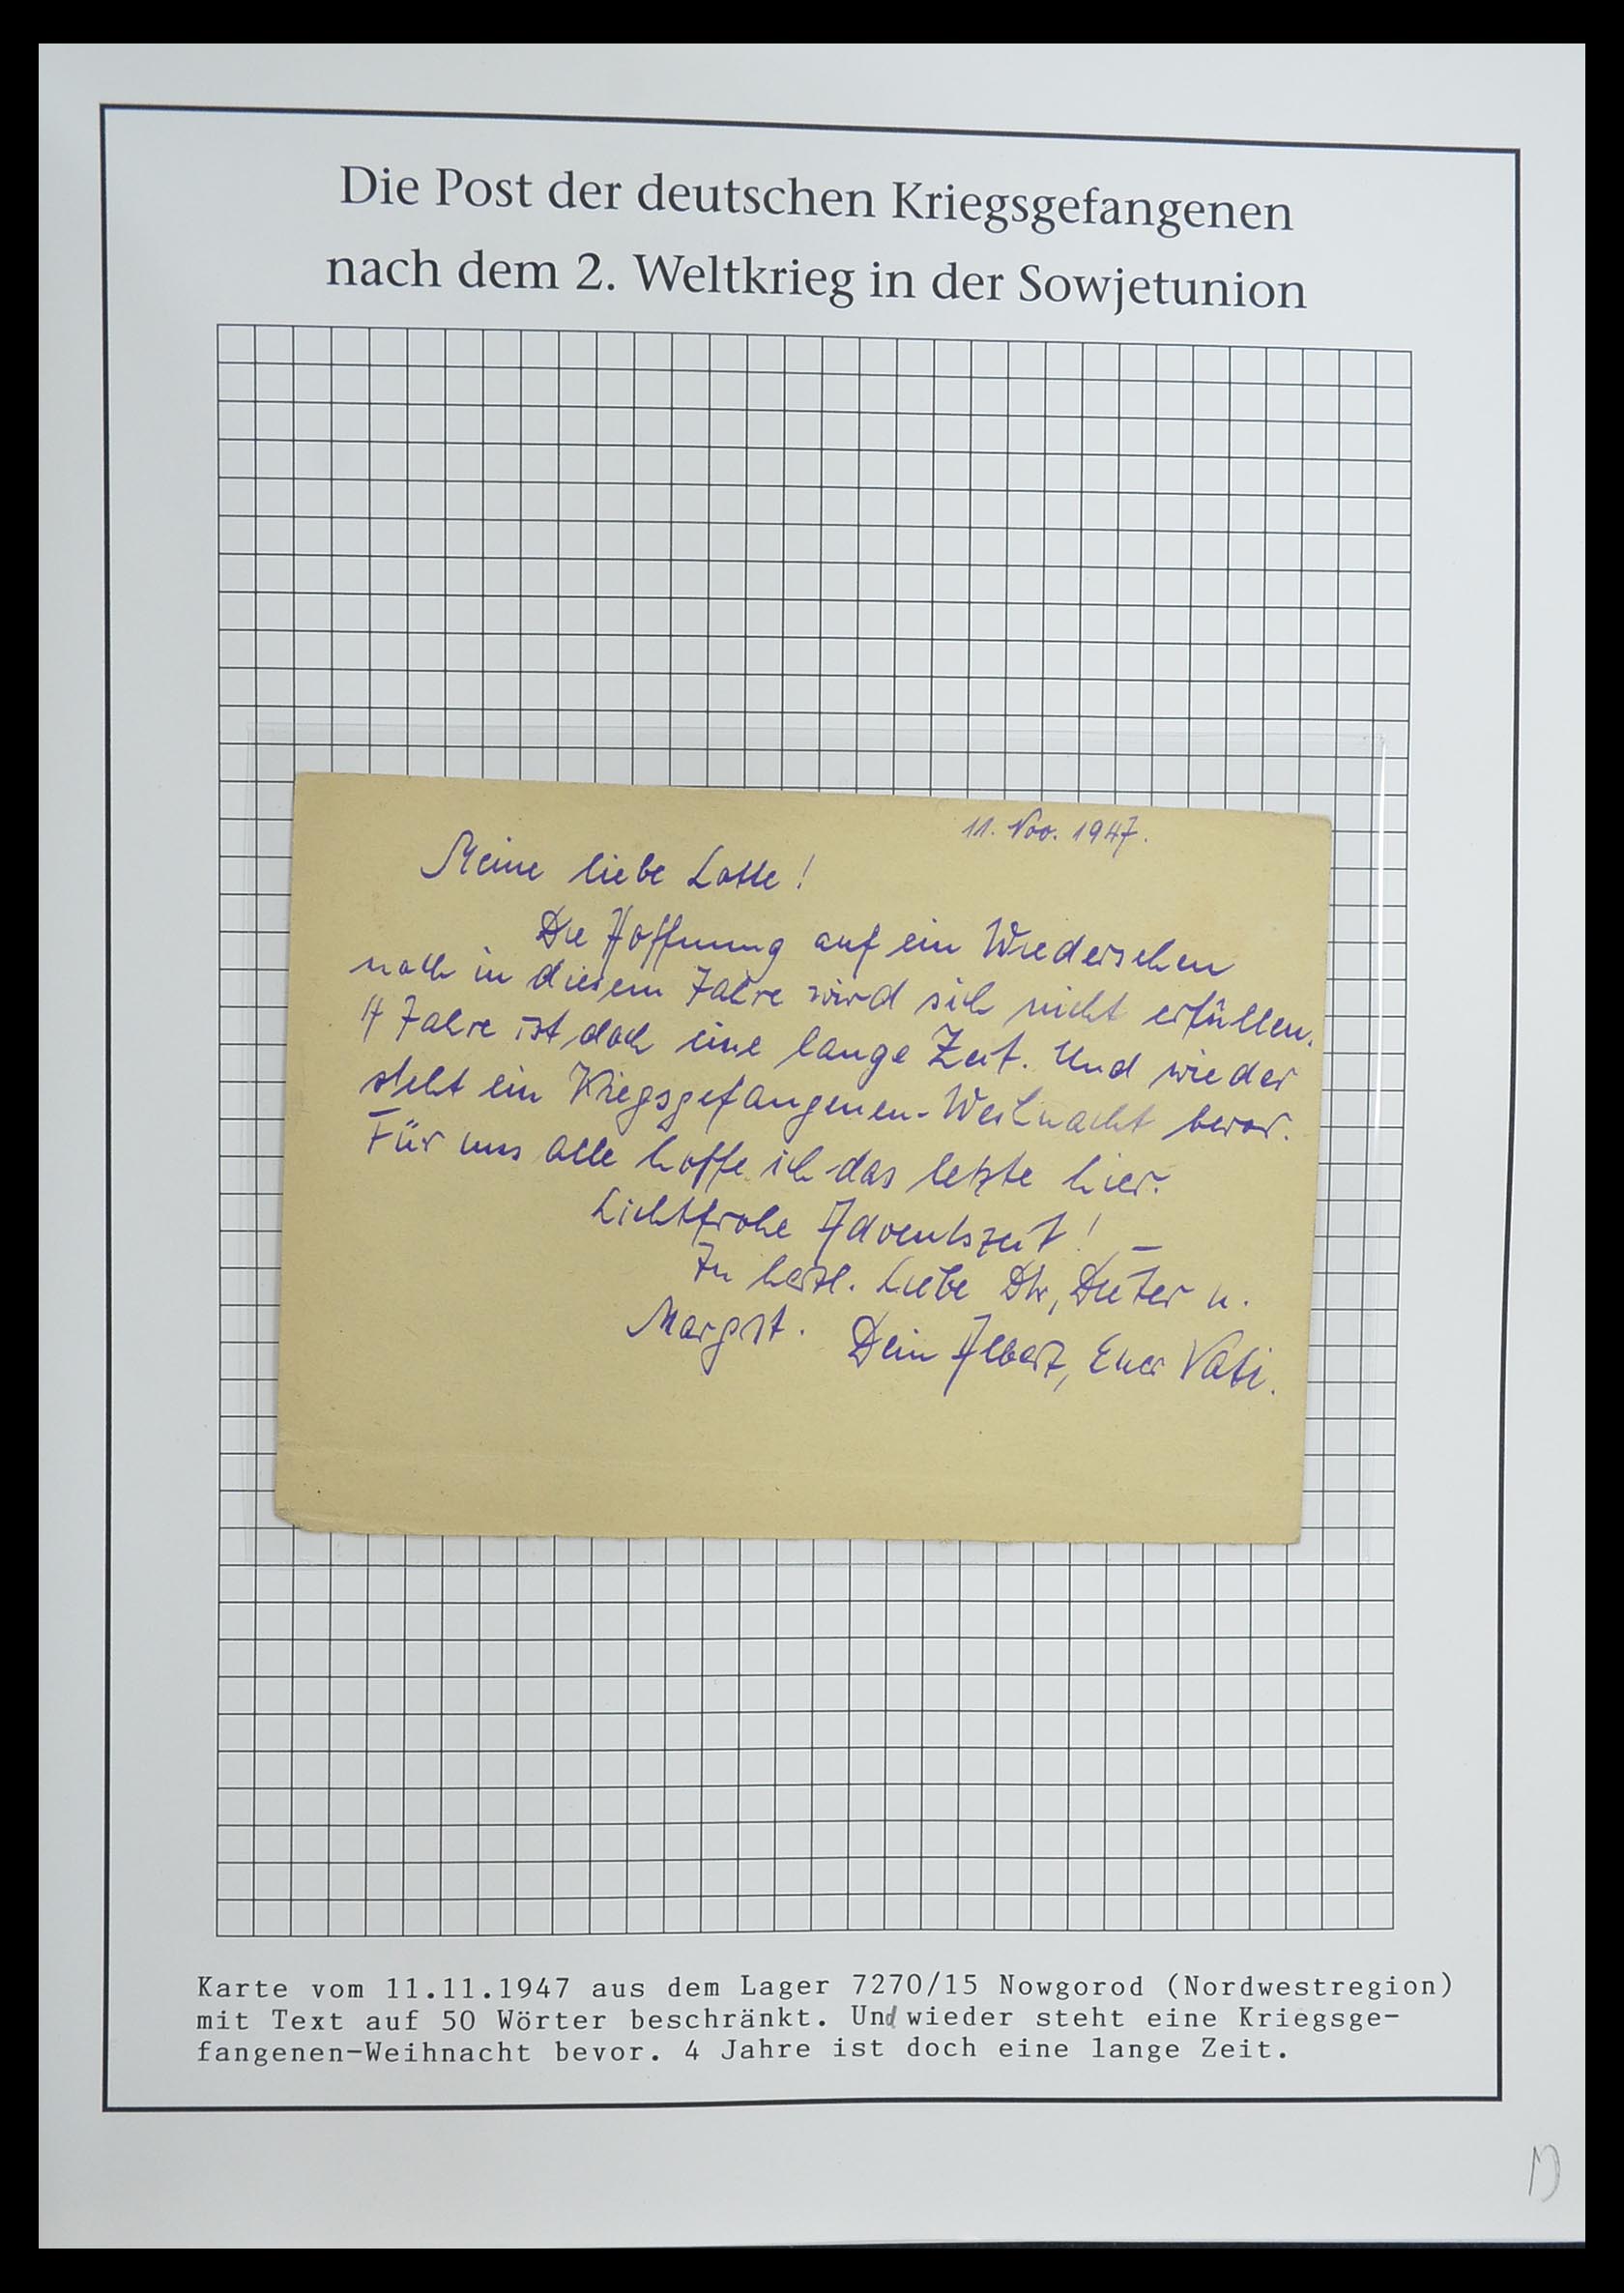 Die Post der deutschen Kriegsgefangenen
nach dem 2. Weltkrieg in der Sowjetunion
11. Nov. 1947.
Meine liebe Lotte!
Die Hoffnung auf ein Wiedersehen
noch in diesem Jahre wird sich nicht erfüllen.
4 Jahre ist doch eine lange Zeit. Und wieder
steht ein Kriegsgefangenen-Weihnacht bevor.
Für uns alle hoffe ich das letzte hier.
Lichtfrohe Adventszeit! –
In herzl. Liebe Dir, Dieter u.
Margrit. Dein Albert, Euer Vati.
Karte vom 11.11.1947 aus dem Lager 7270/15 Nowgorod (Nordwestregion)
mit Text auf 50 Wörter beschränkt. Und wieder steht eine Kriegsge-
fangenen-Weihnacht bevor. 4 Jahre ist doch eine lange Zeit.